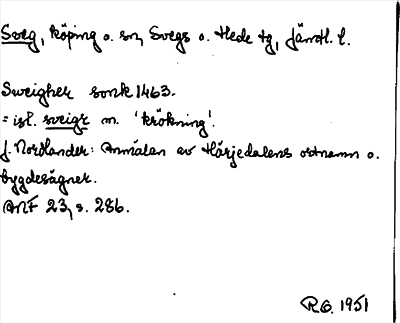 Sveg, köping o. sn, Svegs o. Hede tg, Jämtl. l.
Sweigher sonk 1463.
= isl. sveigr m. 'krökning'.
J. Nordlander: Anmälan av Härjedalens ortnamn o.
bygdesägner.
ANF 23, s. 286.
R.G. 1951